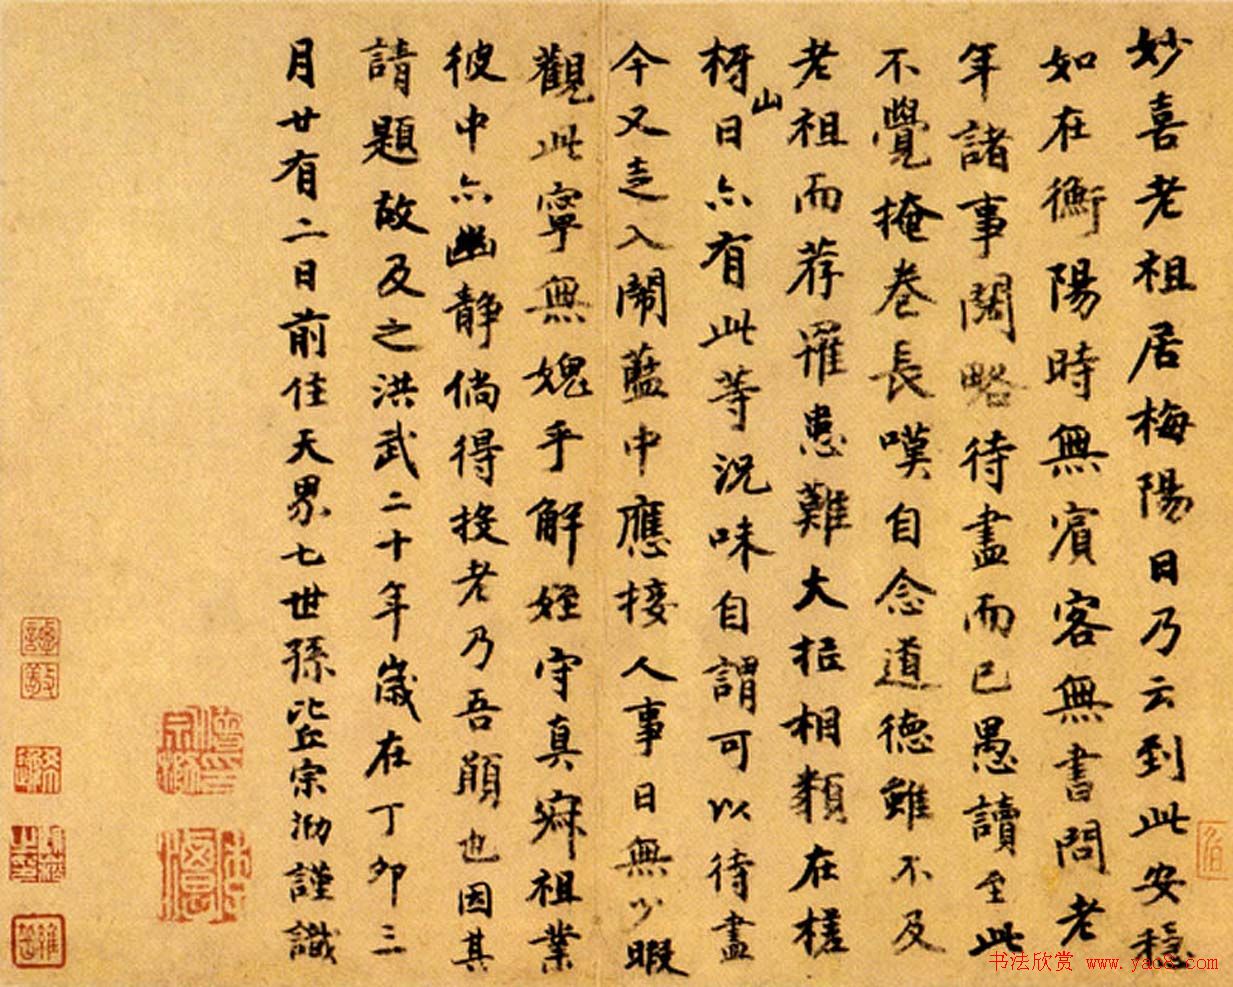 妙喜老祖居梅陽日乃云到此安穩
如在衡陽時無賓客無書問老
年諸事闊略待盡而已愚讀至此
不覺掩卷長嘆自念道德雖不及
老祖而荐罹患難大抵相類在槎
枒山日亦有此等況味自謂可以待盡
今又走入鬧藍中應接人事日無少暇
觀此寧無媿乎解姪守真寂祖業
彼中亦幽靜倘得投老乃吾願也因其
請題故及之洪武二十年歲在丁卯三
月廿有二日前住天界七世孫比丘宗泐謹識
书法欣赏 www.yac8.com